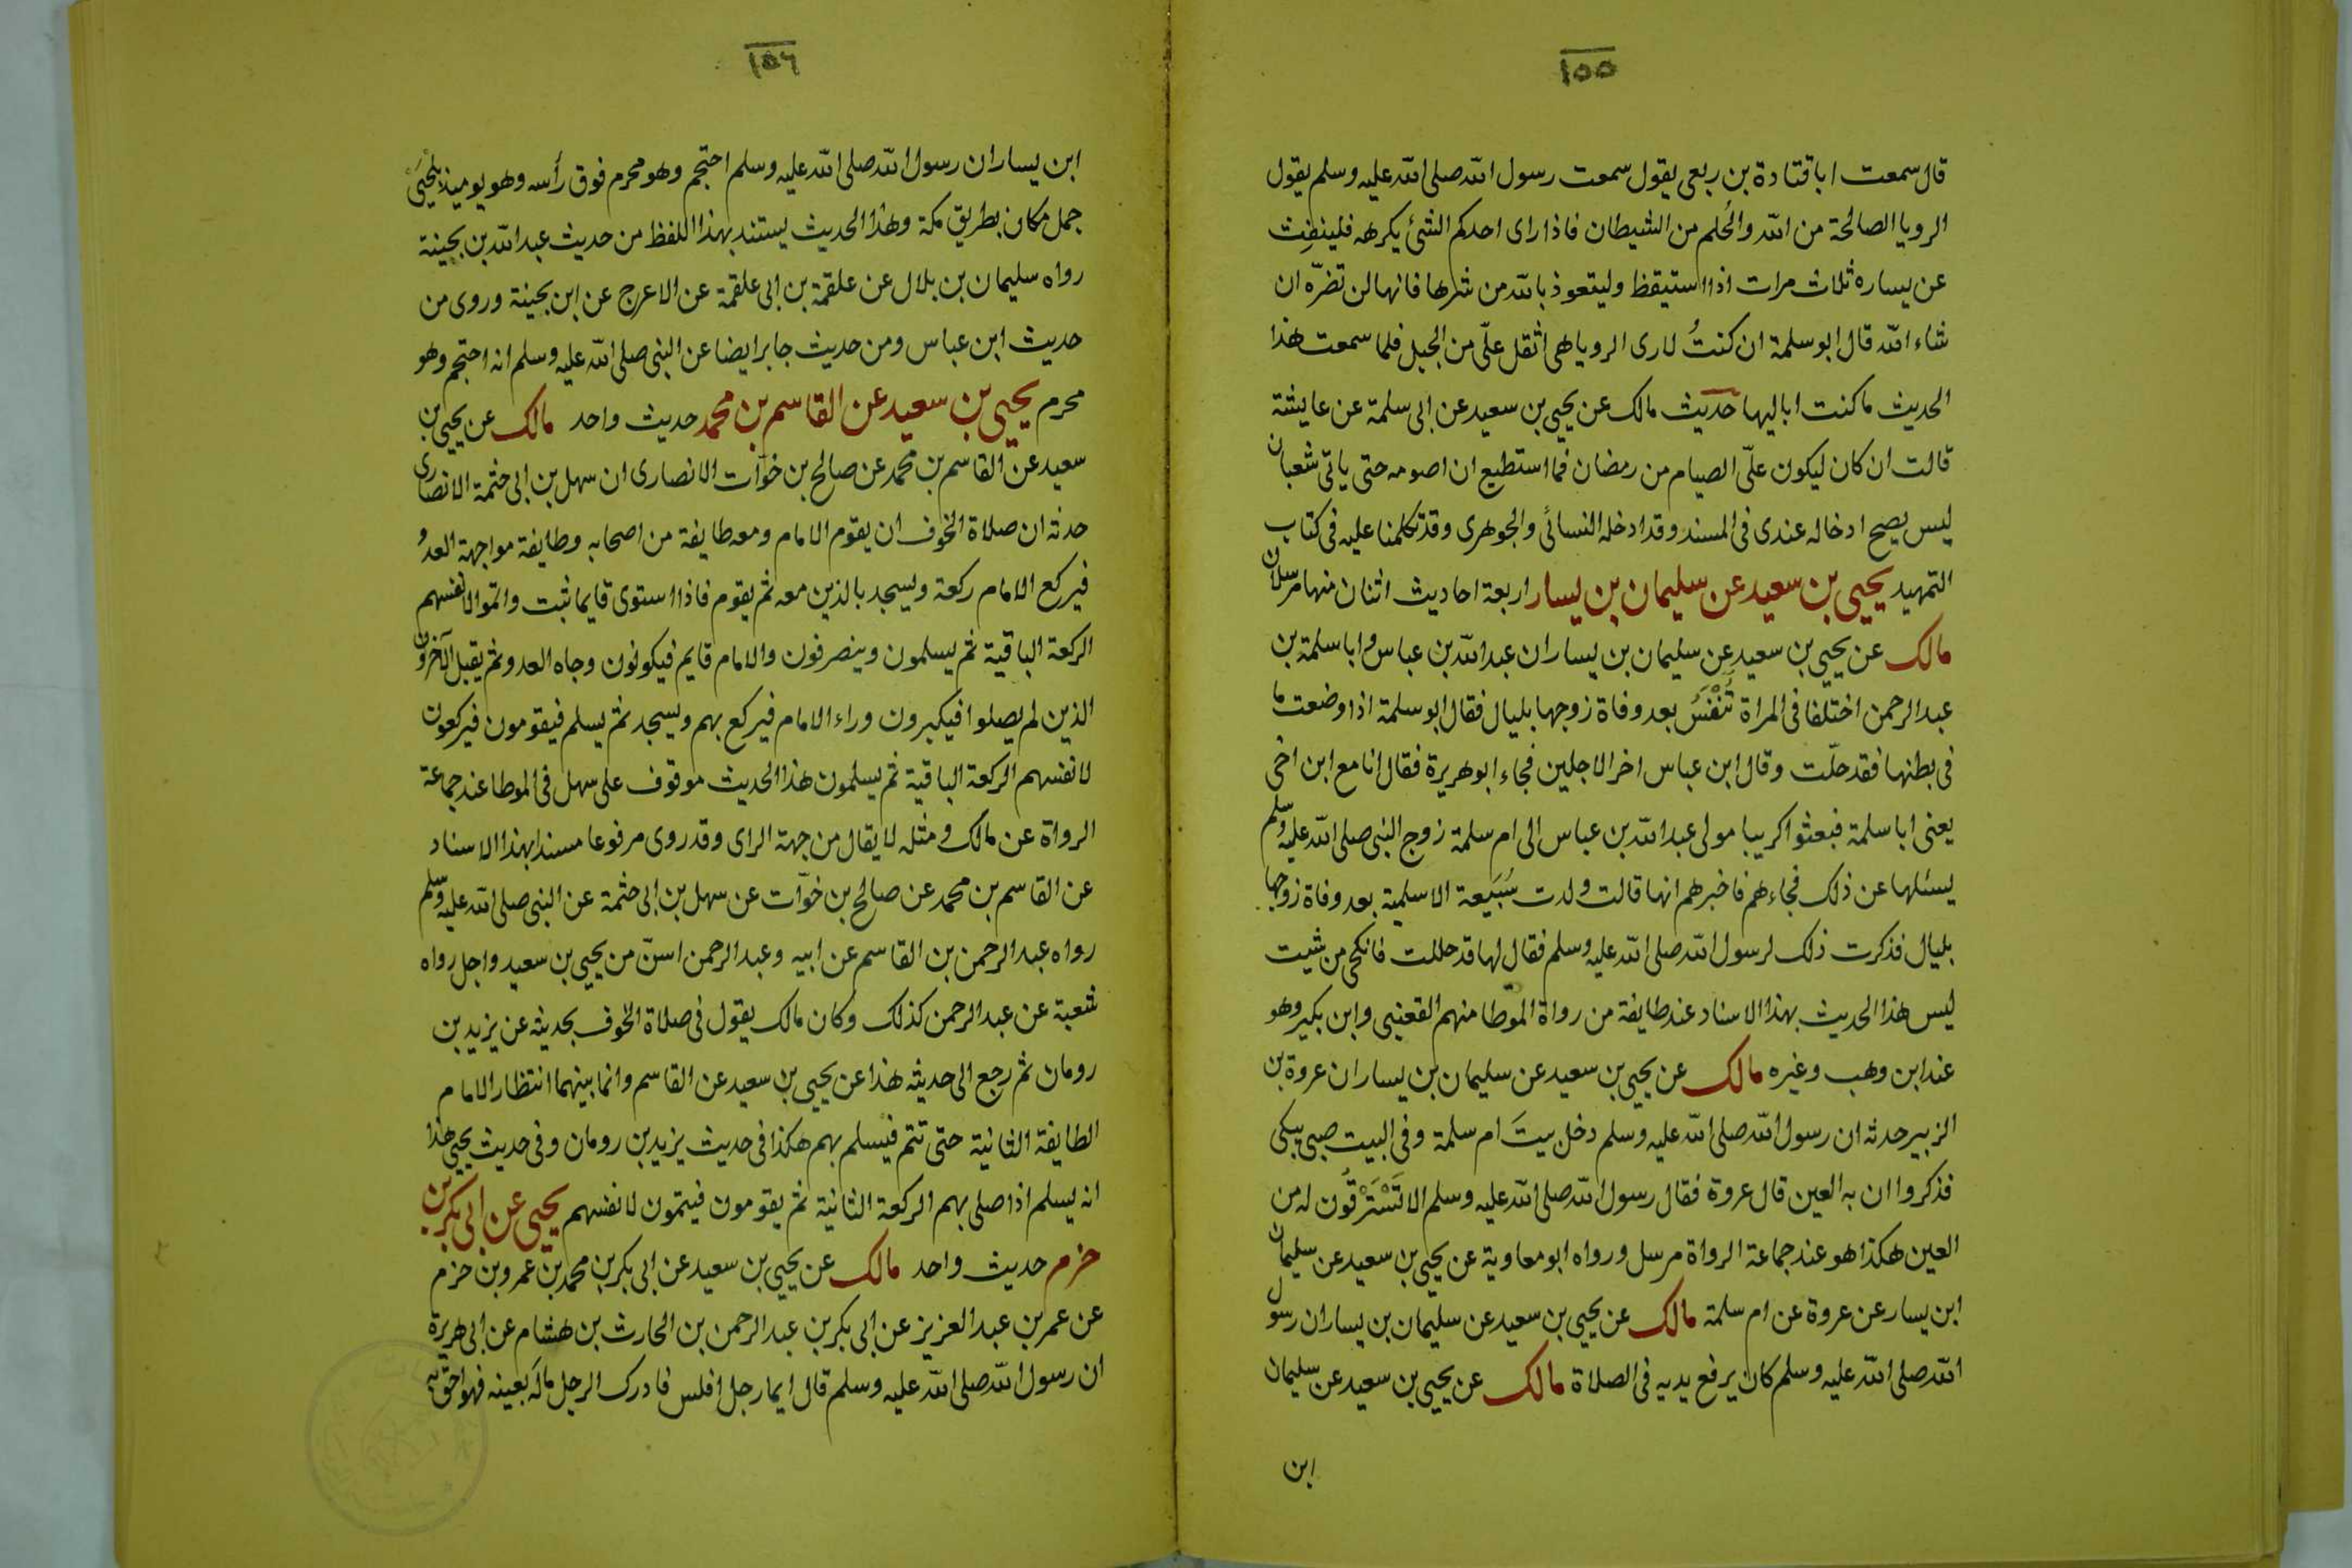 ١٥٥
قال سمعت ابا قتادة بن ربعى يقول سمعت رسول الله صلى الله عليه وسلم يقول
الرويا الصالحة من الله والحُلم من الشيطان فاذا راى احدكم الشئ يكرهه فلينفث
عن يساره ثلاث مرات اذا استيقظ وليتعوذ بالله من شرها فانها لن تضرّه ان
شاء الله قال ابو سلمة ان كنتُ لارى الرويا هى اثقل علىّ من الجبل فلما سمعت هذا
الحديث ما كنت اباليها حديث مالك عن يحيى بن سعيد عن ابى سلمة عن عايشة
قالت ان كان ليكون علىّ الصيام من رمضان فما استطيع ان اصومه حتى ياتى شعبان
ليس يصح ادخاله عندى فى المسند وقد ادخله النسائى والجوهرى وقد تكلمنا عليه فى كتاب
التمهيد يحيى بن سعيد عن سليمان بن يسار اربعة احاديث اثنان منها مرسلان
مالك عن يحيى بن سعيد عن سليمان بن يسار ان عبد الله بن عباس وابا سلمة بن
عبد الرحمن اختلفا فى المراة تُنْفَسُ بعد وفاة زوجها بليال فقال ابو سلمة اذا وضعت ما
فى بطنها فقد حلّت وقال ابن عباس اخر الاجلين فجاء ابو هريرة فقال انا مع ابن اخى
يعنى ابا سلمة فبعثوا كريبا مولى عبد الله بن عباس الى ام سلمة زوج النبى صلى الله عليه وسلم
يسئلها عن ذلك فجاءهم فاخبرهم انها قالت ولدت سُبَيعة الاسلمية بعد وفاة زوجها
بليال فذكرت ذلك لرسول الله صلى الله عليه وسلم فقال لها قد حللت فانكحى من شيت
ليس هذا الحديث بهذا الاسناد عند طايفة من رواة الموطا منهم القعنبى وابن بكير وهو
عند ابن وهب وغيره مالك عن يحيى بن سعيد عن سليمان بن يسار ان عروة بن
الزبير حدثه ان رسول الله صلى الله عليه وسلم دخل بيتَ ام سلمة وفى البيت صبى يبكى
فذكروا ان به العين قال عروة فقال رسول الله صلى الله عليه وسلم الا تَسْتَرْقُون له من
العين هكذا هو عند جماعة الرواة مرسل ورواه ابو معاوية عن يحيى بن سعيد عن سليمان
ابن يسار عن عروة عن ام سلمة مالك عن يحيى بن سعيد عن سليمان بن يسار ان رسول
الله صلى الله عليه وسلم كان يرفع يديه فى الصلاة مالك عن يحيى بن سعيد عن سليمان
ابن
١٥٦
ابن يسار ان رسول الله صلى الله عليه وسلم احتجم وهو محرم فوق رأسه وهو يوميذ بلَحْيَىْ
جمل مكان بطريق مكة وهذا الحديث يستند بهذا اللفظ من حديث عبد الله بن بحينة
رواه سليمان بن بلال عن علقمة بن ابى علقمة عن الاعرج عن ابن بحينة وروى من
حديث ابن عباس ومن حديث جابر ايضا عن النبى صلى الله عليه وسلم انه احتجم وهو
محرم يحيى بن سعيد عن القاسم بن محمد حديث واحد مالك عن يحيى بن
سعيد عن القاسم بن محمد عن صالح بن خوّات الانصارى ان سهل بن ابى حثمة الانصارى
حدثه ان صلاة الخوف ان يقوم الامام ومعه طايفة من اصحابه وطايفة مواجهة العدو
فيركع الامام ركعة ويسجد بالذين معه ثم يقوم فاذا استوى قايما ثبت واتموا لانفسهم
الركعة الباقية ثم يسلمون وينصرفون والامام قايم فيكونون وجاه العدو ثم يقبل الآخرون
الذين لم يصلوا فيكبرون وراء الامام فيركع بهم ويسجد ثم يسلم فيقومون فيركعون
لانفسهم الركعة الباقية ثم يسلمون هذا الحديث موقوف على سهل فى الموطا عند جماعة
الرواة عن مالك ومثله لا يقال من جهة الراى وقد روى مرفوعا مسندا بهذا الاسناد
عن القاسم بن محمد عن صالح بن خوّات عن سهل بن ابى حثمة عن النبى صلى الله عليه وسلم
رواه عبد الرحمن بن القاسم عن ابيه وعبد الرحمن اسنّ من يحيى بن سعيد واجل رواه
شعبة عن عبد الرحمن كذلك وكان مالك يقول فى صلاة الخوف بحديثه عن يزيد بن
رومان ثم رجع الى حديثه هذا عن يحيى بن سعيد عن القاسم وانما بينهما انتظار الامام
الطايفة الثانية حتى تتم فيسلم بهم هكذا فى حديث يزيد بن رومان وفى حديث يحيى هذا
انه يسلم اذا صلى بهم الركعة الثانية ثم يقومون فيتمون لانفسهم يحيى عن ابى بكر بن
حزم حديث واحد مالك عن يحيى بن سعيد عن ابى بكر بن محمد بن عمرو بن حزم
عن عمر بن عبد العزيز عن ابى بكر بن عبد الرحمن بن الحارث بن هشام عن ابى هريرة
ان رسول الله صلى الله عليه وسلم قال ايما رجل افلس فادرك الرجل مالَه بعينه فهو احق به